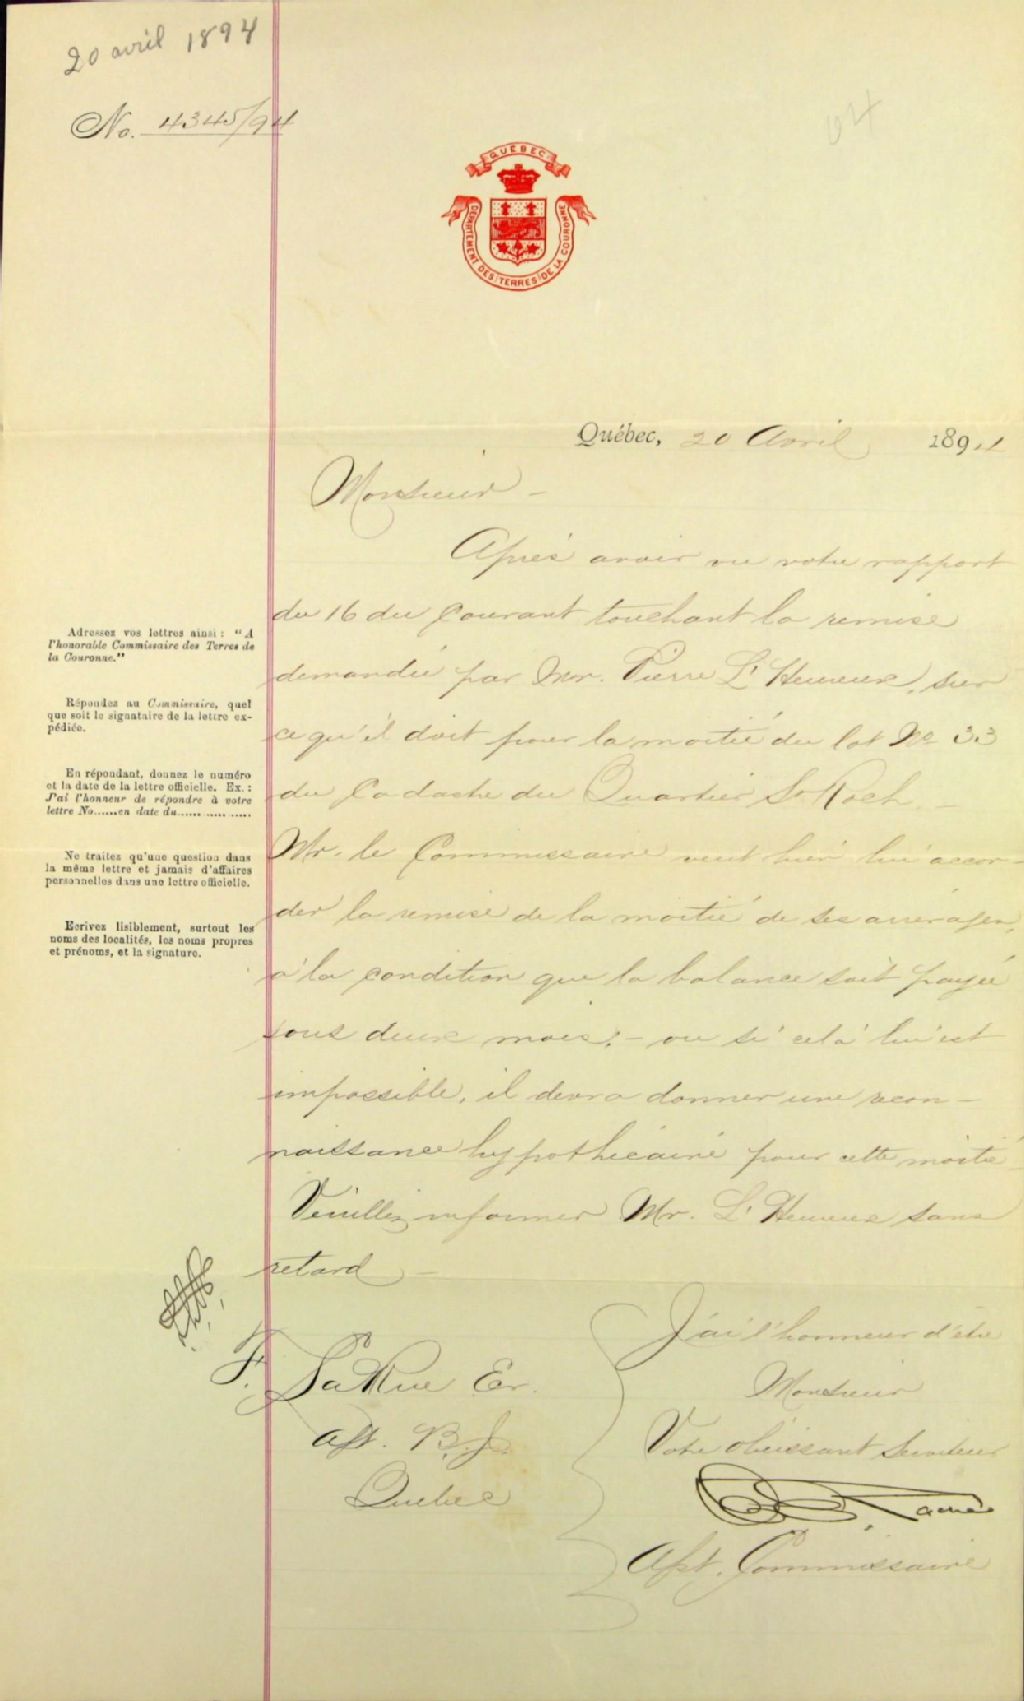 20 avril 1894
No. 4345/94
QUEBEC
DÉPARTEMENT DES TERRES DE LA COURONNE
Québec, 20 Avril 1894
Monsieur -
Après avoir vu votre rapport
du 16 du Courant touchant la remise
demandée par Mr. Pierre L'Heureux, sur
ce qu'il doit pour la moitié du lot No 33
du Cadastre du Quartier St Roch.
Mr. le Commissaire veut bien lui accor-
der la remise de la moitié de ses arrérages,
à la condition que la balance soit payée
sous deux mois; - ou si cela lui est
impossible, il devra donner une recon-
naissance hypothécaire pour cette moitié
Veuillez informer Mr. L'Heureux sans
retard -
Adressez vos lettres ainsi : "A
l'honorable Commissaire des Terres de
la Couronne."
Répondez au Commissaire, quel
que soit le signataire de la lettre ex-
pédiée.
En répondant, donnez le numéro
et la date de la lettre officielle. Ex. :
J'ai l'honneur de répondre à votre
lettre No......en date du..................
Ne traitez qu'une question dans
la même lettre et jamais d'affaires
personnelles dans une lettre officielle.
Ecrivez lisiblement, surtout les
noms des localités, les noms propres
et prénoms, et la signature.
J'ai l'honneur d'être
Monsieur
Votre obéissant Serviteur
E. E. Taché
Asst. Commissaire
F. LaRue Er.
Agt. B. J.
Quebec